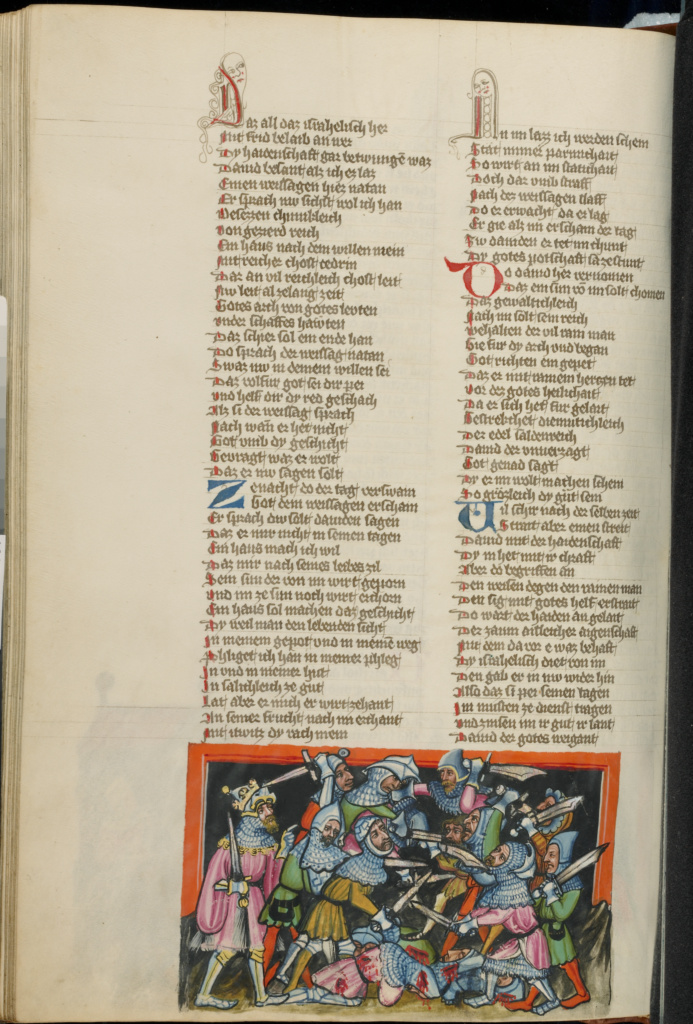 Daz all daz israhelisch her
Mit frid belaib an wer
Dy haidenschaft gar betwungē waz
Dauid besant alz ich ez laz
Einen weissagen hiez natan
Er sprach nw sichst wol ich han
Besezzen chunikleich
Von gezierd reich
Ein haus nach dem willen mein
Mit reicher chost cedrin
Dar an vil reichleich chost leit
Nw leit al ze lang zeit
Gotes arch von gotes lewten
Vnder schaffes hawten
Daz schier sol ein ende han
Do sprach der weissag natan
Swaz nw in deinem willen sei
Daz volfur got sei dir pei
Vnd helf dir dy red geschach
Alz si der weissag sprach
Nach wan er het nicht
Got vmb dy geschicht
Gevragt waz er wolt
Daz er nw sagen solt
Ze nacht do der tag verswain
Got dem weissagen erschain
Er sprach dw solt dauiden sagen
Daz er mir nicht in seinen tagen
Ein haus mach ich wil
Daz mir nach seines leibes zil
Sein sun der von im wirt geporn
Vnd im ze sun noch wirt erchorn
Ein haus sol machen daz geschicht
Dy weil man den lebenden sicht
In meinem gepot vnd in meinē weg
Phliget ich han in meiner phleg
In vnd in meiner hut
In salichleich ze gut
Lat aber er mich er wirt zehant
An seiner frucht nach im erchant
Mit itwitz dy rach mein
An im lazz ich werden schein
Stat immer parmchait
So wirt an im statichait
Doch dar vmb straff
Nach der weissagen claff
Do er erwacht da er lag
Er gie alz im erschain der tag
Zw dauiden er tet im chunt
Dy gotes potschaft sa ze stunt
Do dauid her vernomen
Daz ein sun vō im solt chomen
Daz gewaltichleich
Nach im solt sein reich
Behalten der vil rain man
Gie fur dy arch vnd began
Got richten ein gepet
Daz er mit rainem herczen tet
Vor der gotes heilichait
Da er sich het fur gelait
Gestrekchet diemutichleich
Der edel saldenreich
Dauid der vnuerzagt
Got genad sagt
Dy er im wolt machen schein
So grozleich dy gut sein
Vil schir nach der selben zeit
Strait aber einen streit
Dauid mit der haidenschaft
Dy in het mit ir chraft
Aber do begriffen an
Den weisen degen den rainen man
Den sig mit gotes helf erstrait
Do wart der haiden an gelait
Der zaum aisleicher aigenschaft
Mit dem da vor e waz behaft
Dy israhelisch diet von im
Den gab er in nw wider hin
Also daz si per seinen tagen
Im musten ze dienst tragen
Vnd zinsen im ir gut ir lant
Dauid der gotes weigant